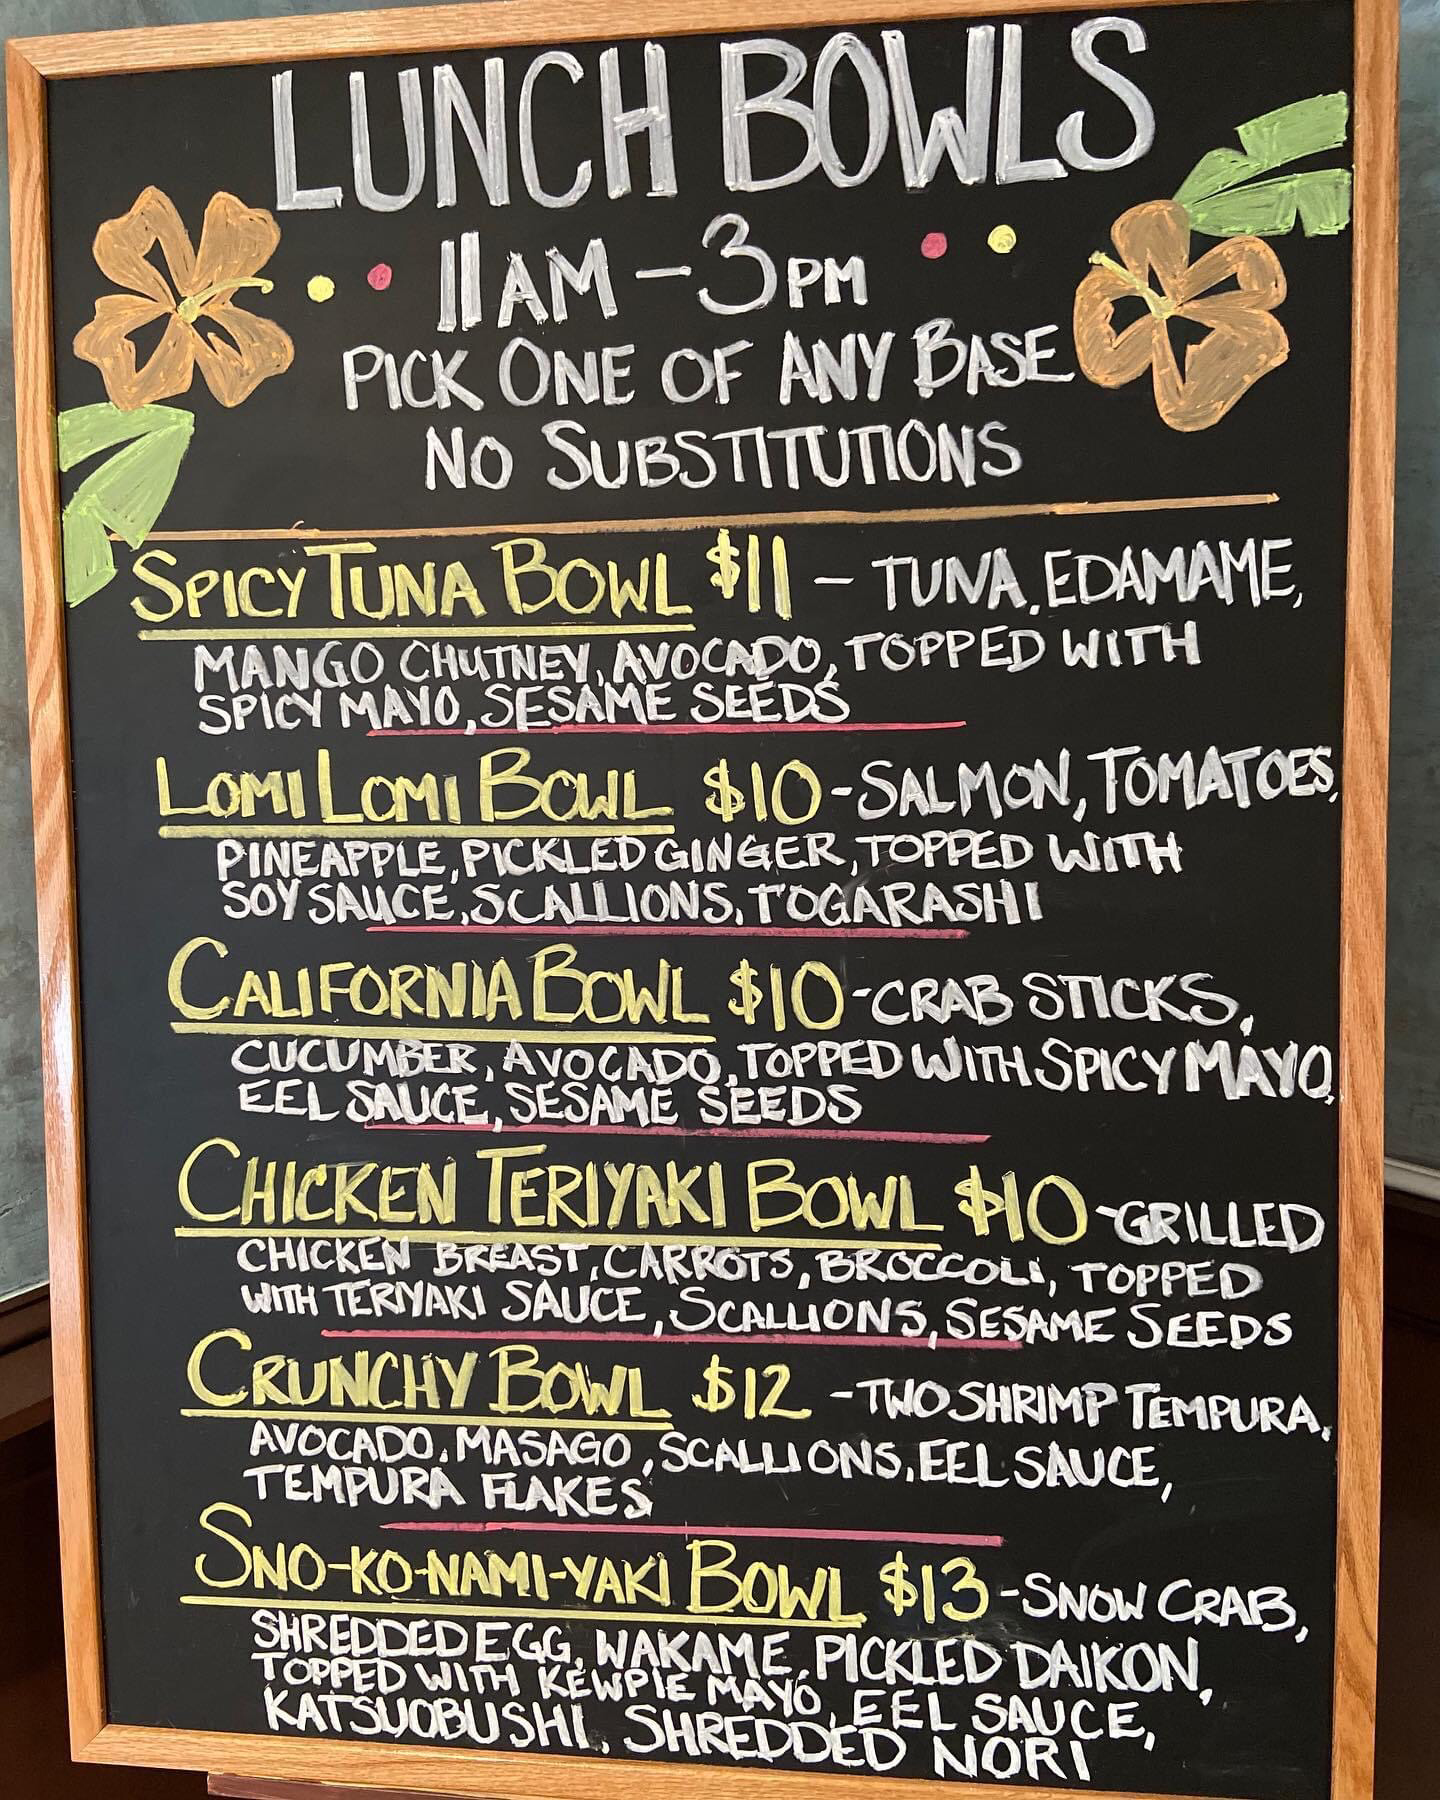 LUNCH BOWLS
11AM - 3PM
PICK ONE OF ANY BASE
NO SUBSTITUTIONS
SPICY TUNA BOWL $11 - TUNA, EDAMAME,
MANGO CHUTNEY, AVOCADO, TOPPED WITH
SPICY MAYO, SESAME SEEDS
LOMI LOMI BOWL $10 - SALMON, TOMATOES,
PINEAPPLE, PICKLED GINGER, TOPPED WITH
SOY SAUCE, SCALLIONS, TOGARASHI
CALIFORNIA BOWL $10 - CRAB STICKS,
CUCUMBER, AVOCADO, TOPPED WITH SPICY MAYO,
EEL SAUCE, SESAME SEEDS
CHICKEN TERIYAKI BOWL $10 - GRILLED
CHICKEN BREAST, CARROTS, BROCCOLI, TOPPED
WITH TERIYAKI SAUCE, SCALLIONS, SESAME SEEDS
CRUNCHY BOWL $12 - TWO SHRIMP TEMPURA,
AVOCADO, MASAGO, SCALLIONS, EEL SAUCE,
TEMPURA FLAKES
SNO-KO-NAMI-YAKI BOWL $13 - SNOW CRAB,
SHREDDED EGG, WAKAME, PICKLED DAIKON,
TOPPED WITH KEWPIE MAYO, EEL SAUCE,
KATSUOBUSHI, SHREDDED NORI